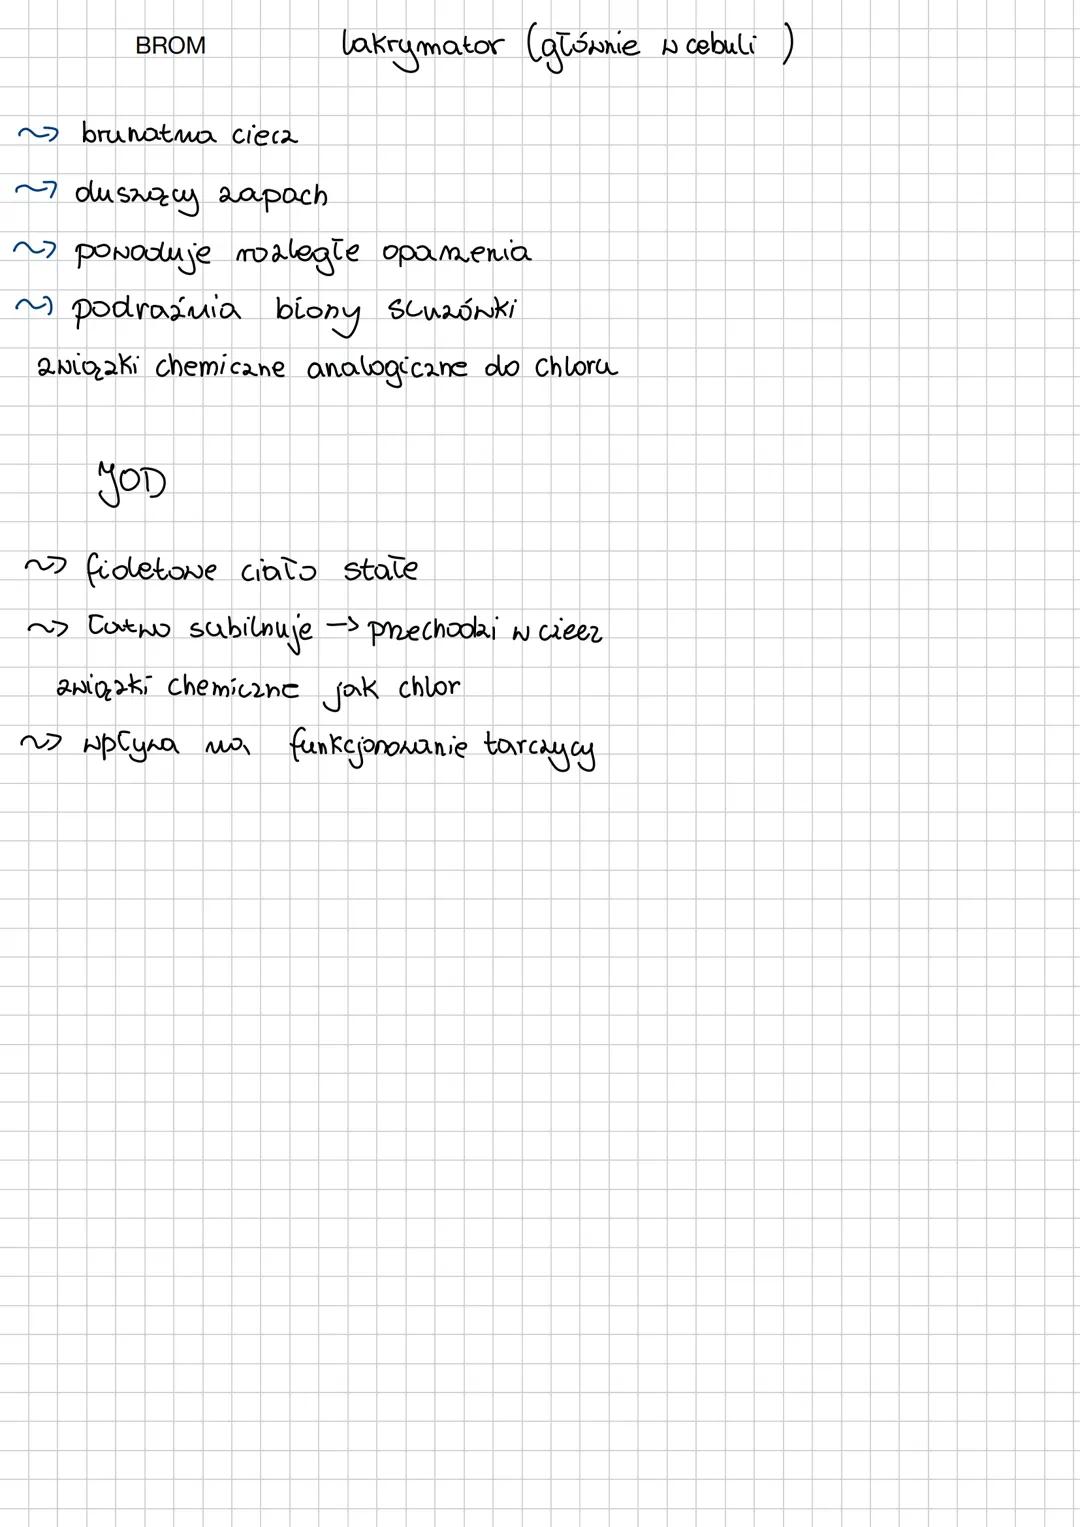 BROM lakrymator (głównie w cebuli )
~> brunatna ciecz
~> duszący zapach
~> powoduje rozległe oparzenia
~> podraźnia błony śluzówki
związki chemiczne analogiczne do chloru
JOD
~> fioletowe ciało stałe
~> łatwo subilnuje -> przechodzi w ciecz
związki chemiczne jak chlor
~> wpływa na funkcjonowanie tarczycy